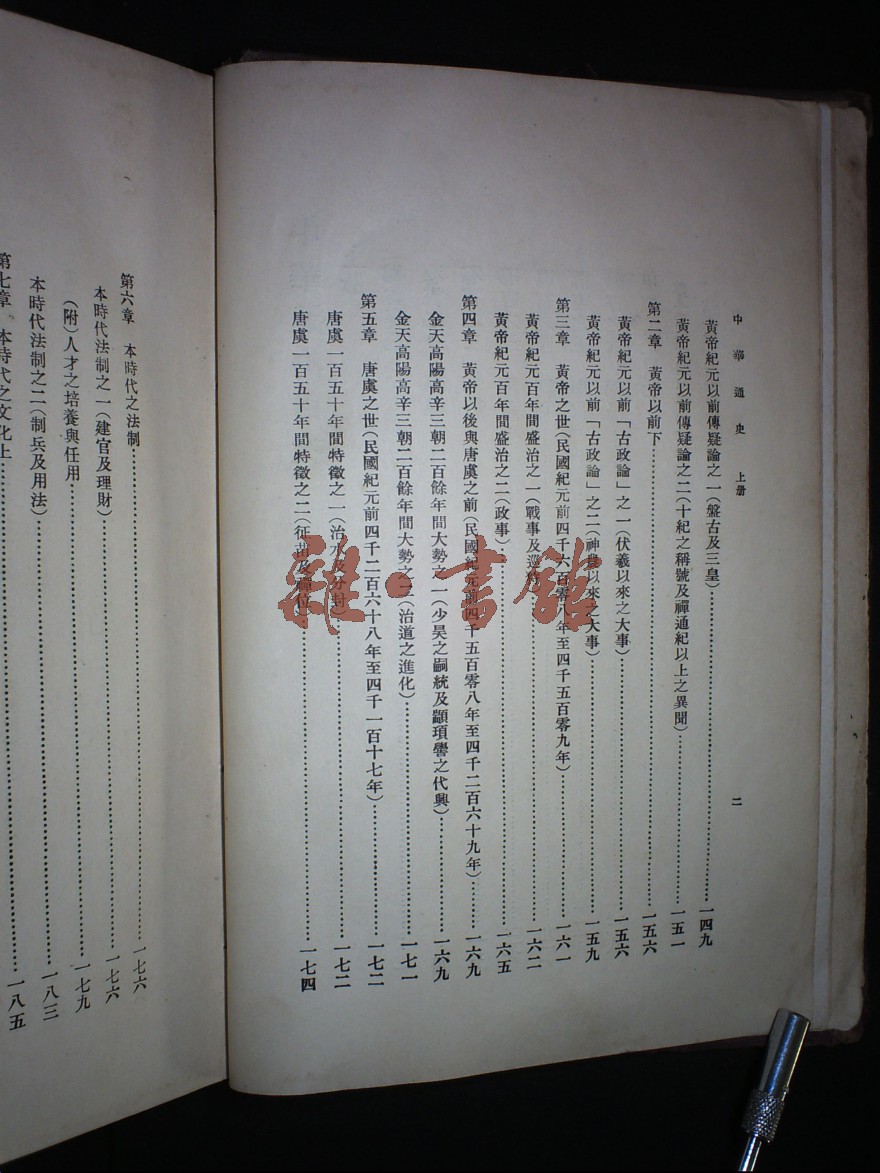 中華通史 上册 二
黃帝紀元以前傳疑論之一(盤古及三皇)………一四九
黃帝紀元以前傳疑論之二(十紀之稱號及禪通紀以上之異聞)………一五一
第二章 黃帝以前下………一五六
黃帝紀元以前「古政論」之一(伏羲以來之大事)………一五六
黃帝紀元以前「古政論」之二(神農以來之大事)………一五九
第三章 黃帝之世(民國紀元前四千六百零八年至四千五百零九年)………一六一
黃帝紀元百年間盛治之一(戰事及巡狩)………一六二
黃帝紀元百年間盛治之二(政事)………一六五
第四章 黃帝以後與唐虞之前(民國紀元前四千五百零八年至四千二百六十九年)………一六九
金天高陽高辛三朝二百餘年間大勢之一(少昊之嗣統及顓頊嚳之代興)………一六九
金天高陽高辛三朝二百餘年間大勢之二(治道之進化)………一七一
第五章 唐虞之世(民國紀元前四千二百六十八年至四千一百十七年)………一七二
唐虞一百五十年間特徵之一(治水及分封)………一七二
唐虞一百五十年間特徵之二(征苗及禪位)………一七四
第六章 本時代之法制………一七六
本時代法制之一(建官及理財)………一七六
(附)人才之培養與任用………一七九
本時代法制之二(制兵及用法)………一八三
第七章 本時代之文化上………一八五
雜·書館